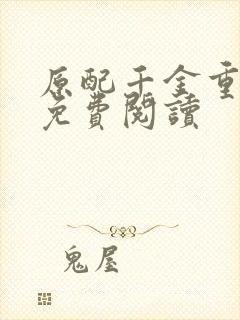 原配千金重
免費閱讀
鬼屋